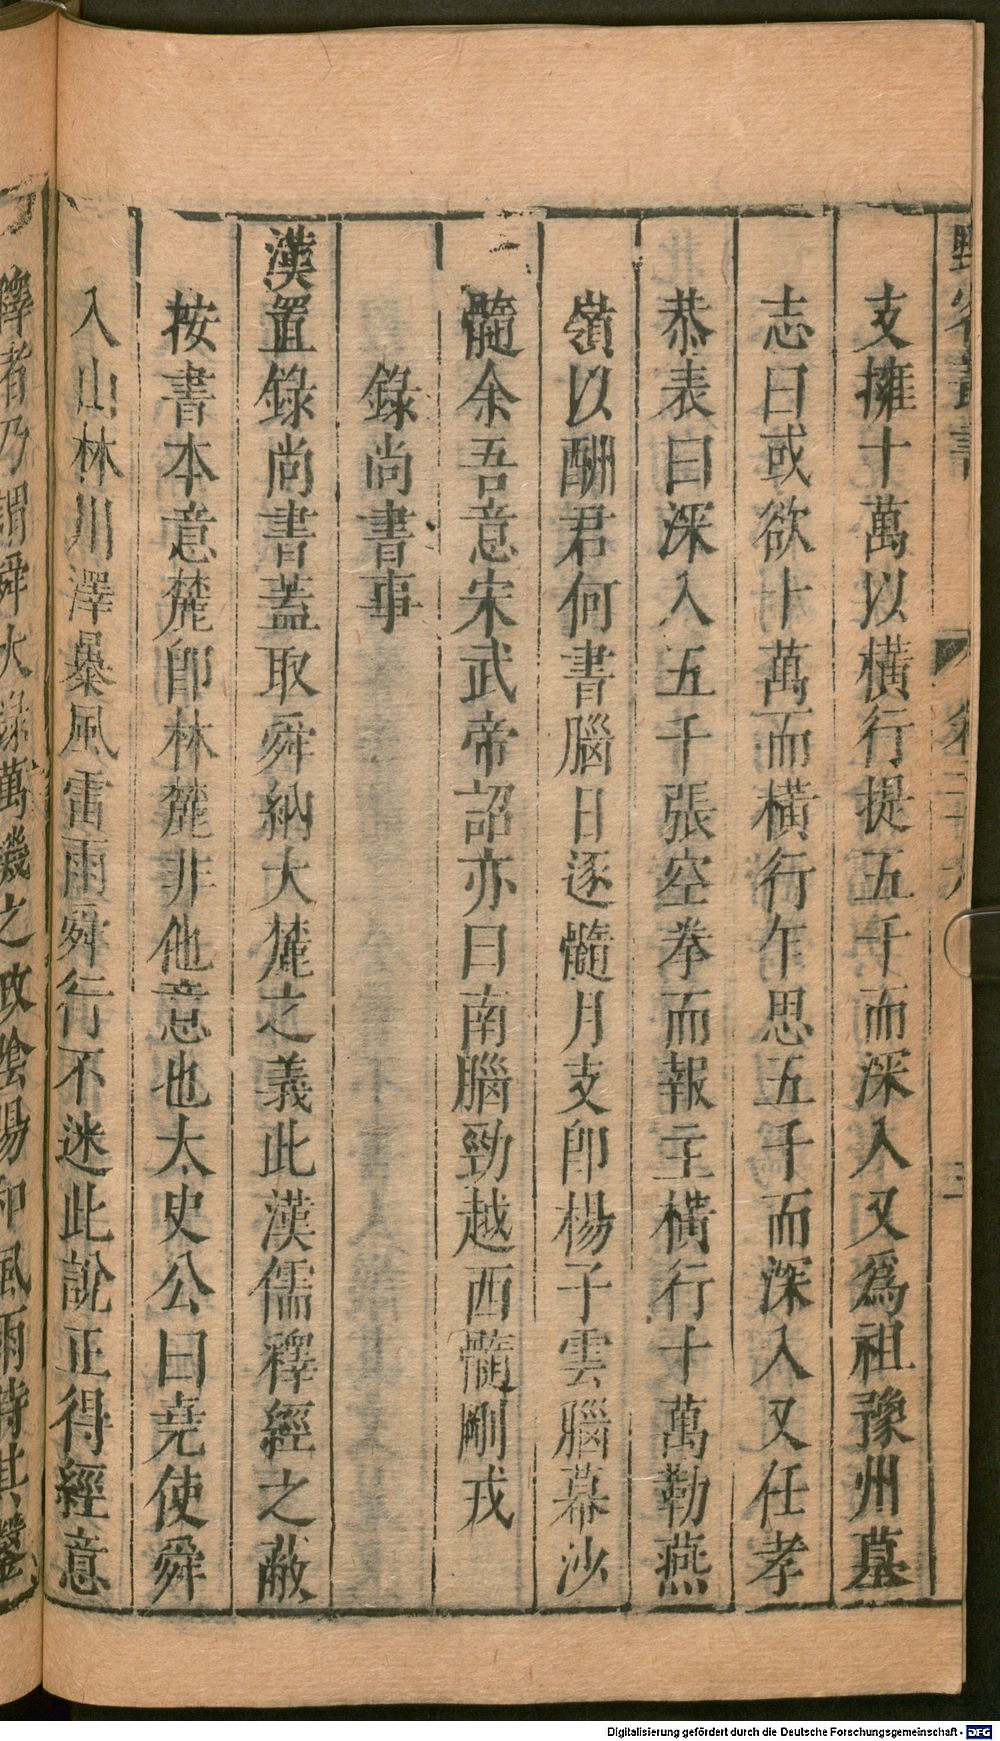 支擁十萬以橫行提五千而深入又爲祖豫州墓
志曰或欲十萬而橫行乍思五千而深入又任孝
恭表曰深入五千張空拳而報主橫行十萬勒燕
嶺以酬君何書腦日逐髓月支卽楊子雲腦幕沙
髓余吾意宋武帝詔亦曰南腦勁越西髓剛戎
錄尚書事
漢置錄尚書蓋取舜納大麓之義此漢儒釋經之蔽
按書本意麓卽林麓非他意也太史公曰堯使舜
入山林川澤暴風雷雨舜行不迷此說正得經意
釋者乃謂舜大錄萬機之政陰陽和風雨時此
Digitalisierung gefördert durch die Deutsche Forschungsgemeinschaft - DFG